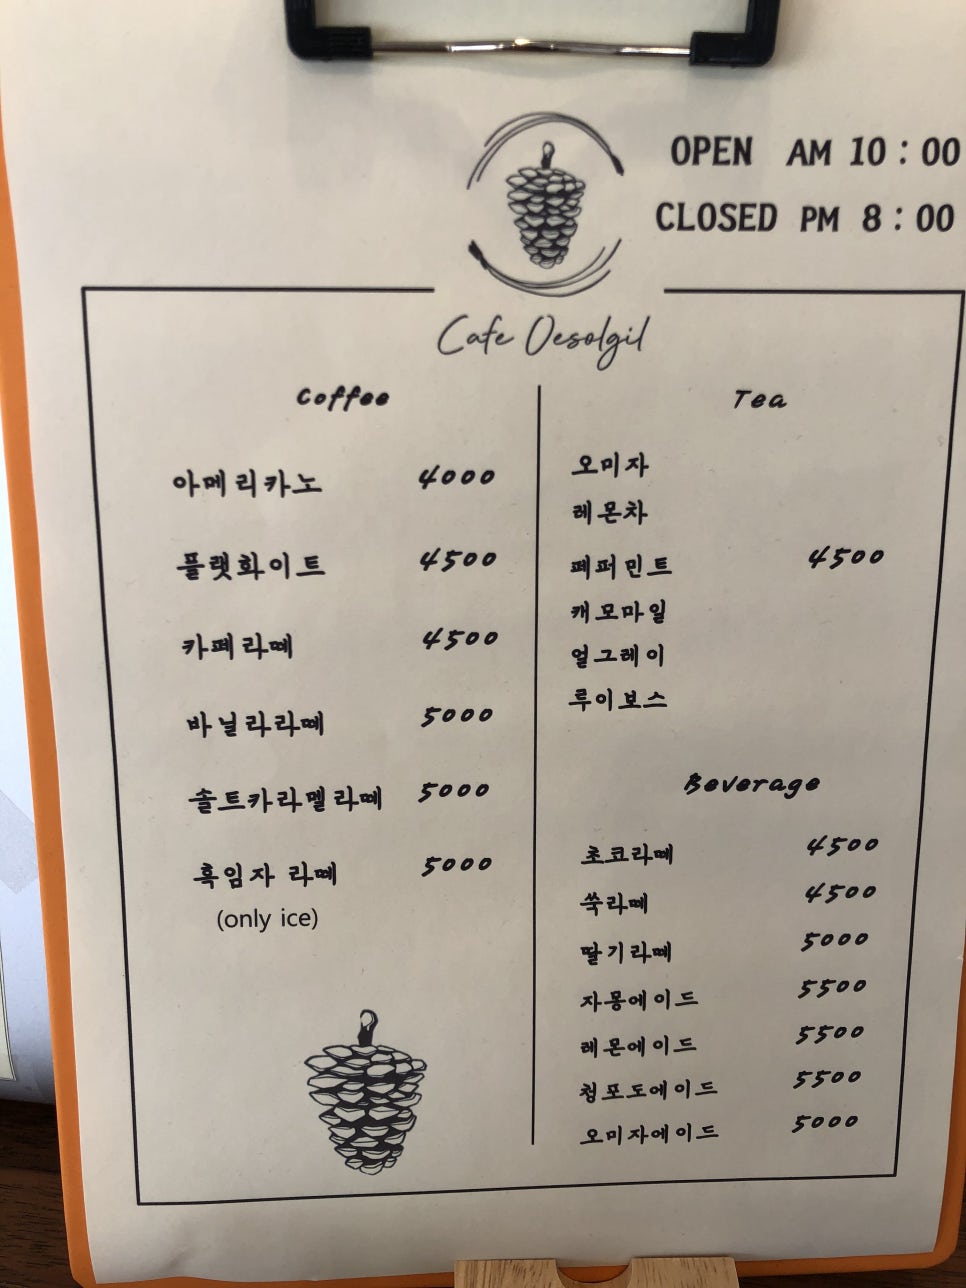 OPEN AM 10 : 00
CLOSED PM 8 : 00
Cafe Oesolgil
Coffee
아메리카노 4000
플랫화이트 4500
카페라떼 4500
바닐라라떼 5000
솔트카라멜라떼 5000
흑임자 라떼 5000
(only ice)
Tea
오미자
레몬차
페퍼민트 4500
캐모마일
얼그레이
루이보스
Beverage
초코라떼 4500
쑥라떼 4500
딸기라떼 5000
자몽에이드 5500
레몬에이드 5500
청포도에이드 5500
오미자에이드 5000